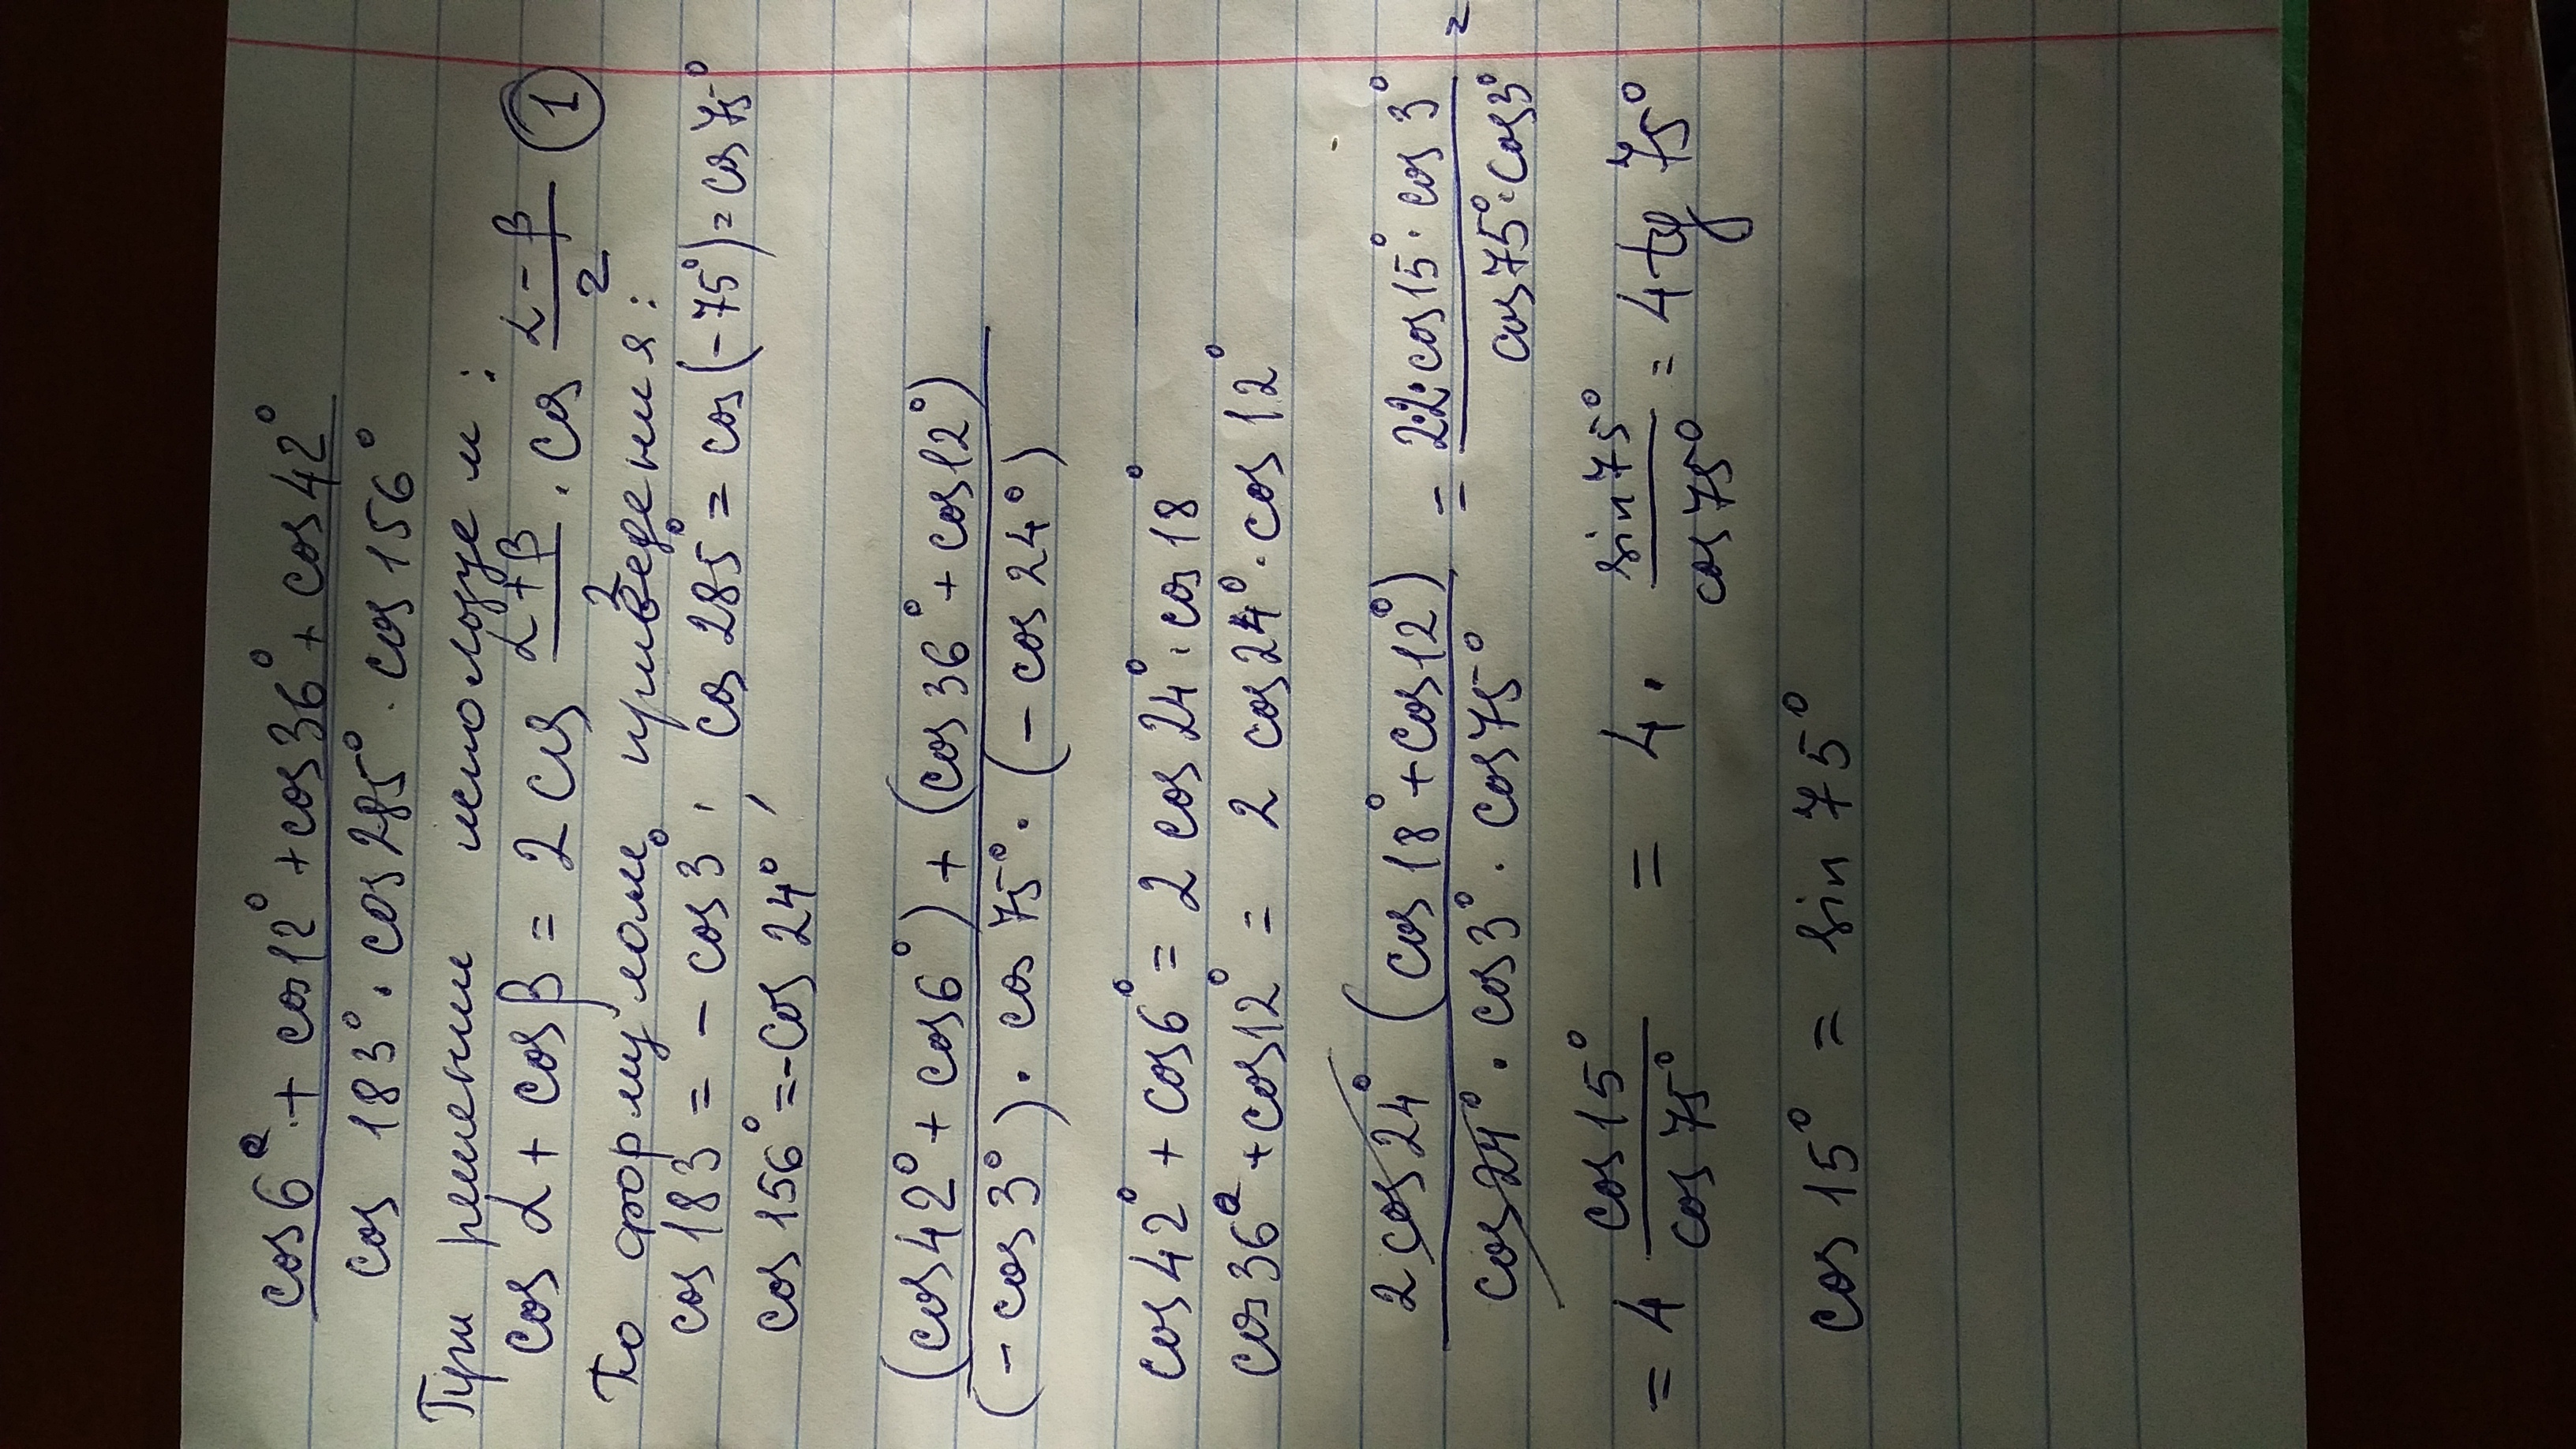 cos6° + cos12° + cos36° + cos42°
cos 183° · cos285° · cos 156°
При решении используем:
cos α + cos β = 2 cos α + β / 2 · cos α - β / 2 (1)
По формулам приведения:
cos 183° = - cos 3°, cos 285° = cos (- 75°) = cos 75°
cos 156° = - cos 24°,
(cos 42° + cos 6°) + (cos 36° + cos12°)
(- cos 3°) · cos 75° · (- cos 24°)
cos 42° + cos6° = 2 cos 24° · cos 18°
cos 36° + cos12° = 2 cos24° · cos 12°
2 cos 24° (cos 18° + cos12°) = 2·2·cos15° · cos 3° =
cos24° · cos3° · cos75° cos75° · cos3°
= 4 cos 15° / cos 75° = 4 · sin 75° / cos 75° = 4 tg 75°
cos 15° = sin 75°